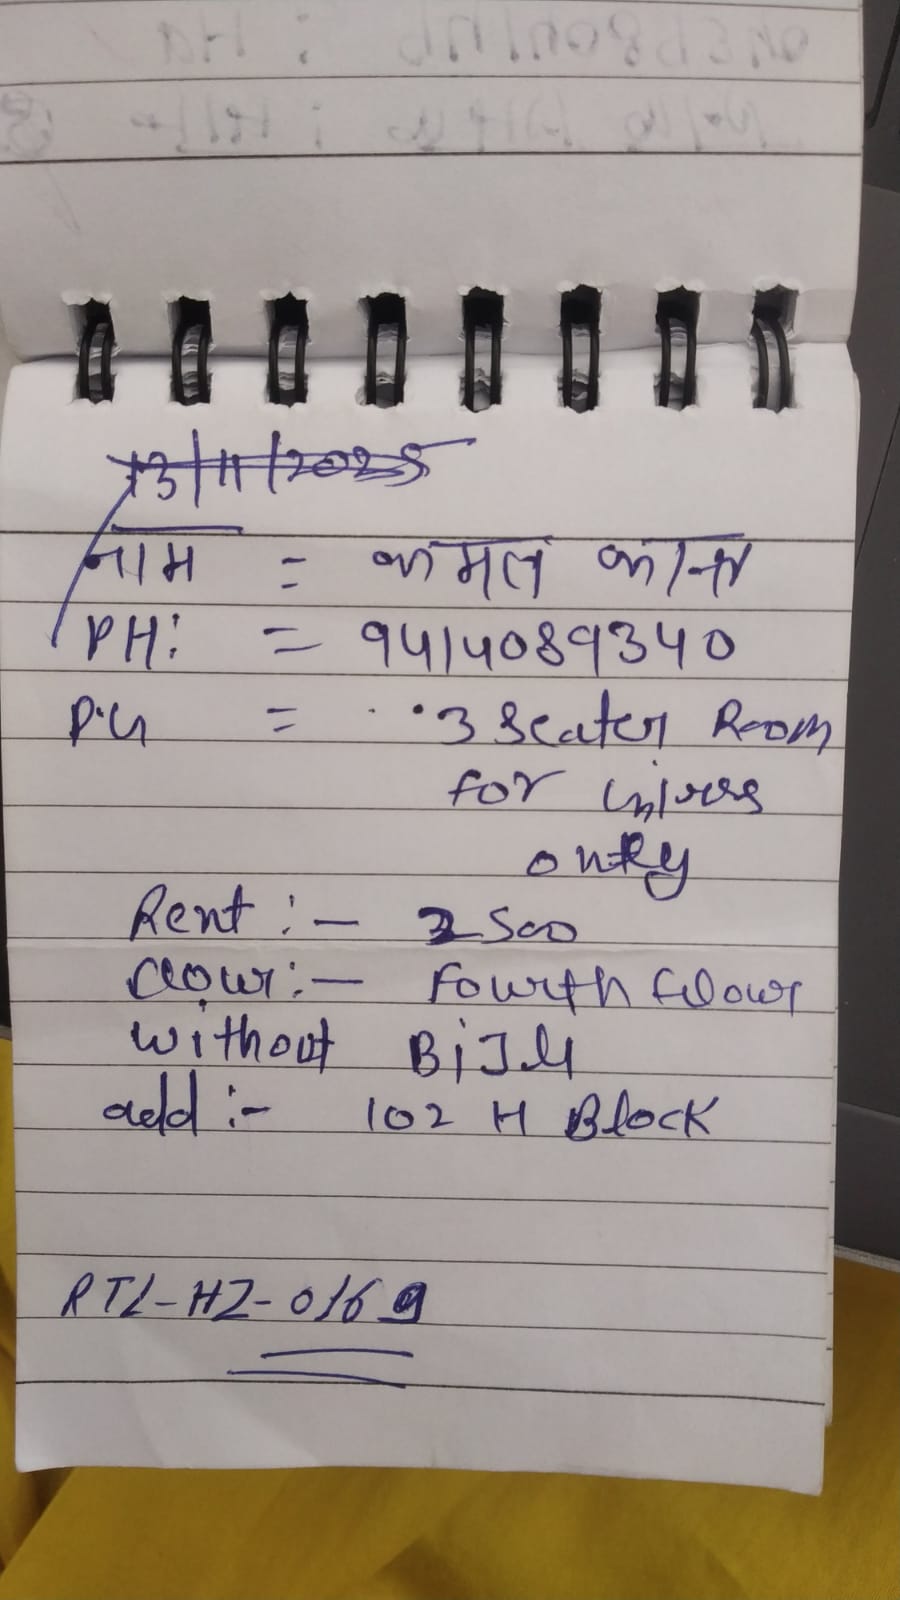 13/11/2025
नाम = कमल कान्त
PH: = 9414089340
P.G = 3 Seater Room
for only
Rent :- 2500
Fourth
without Bijli
add :- 102 H Block
RTL-HZ-0169